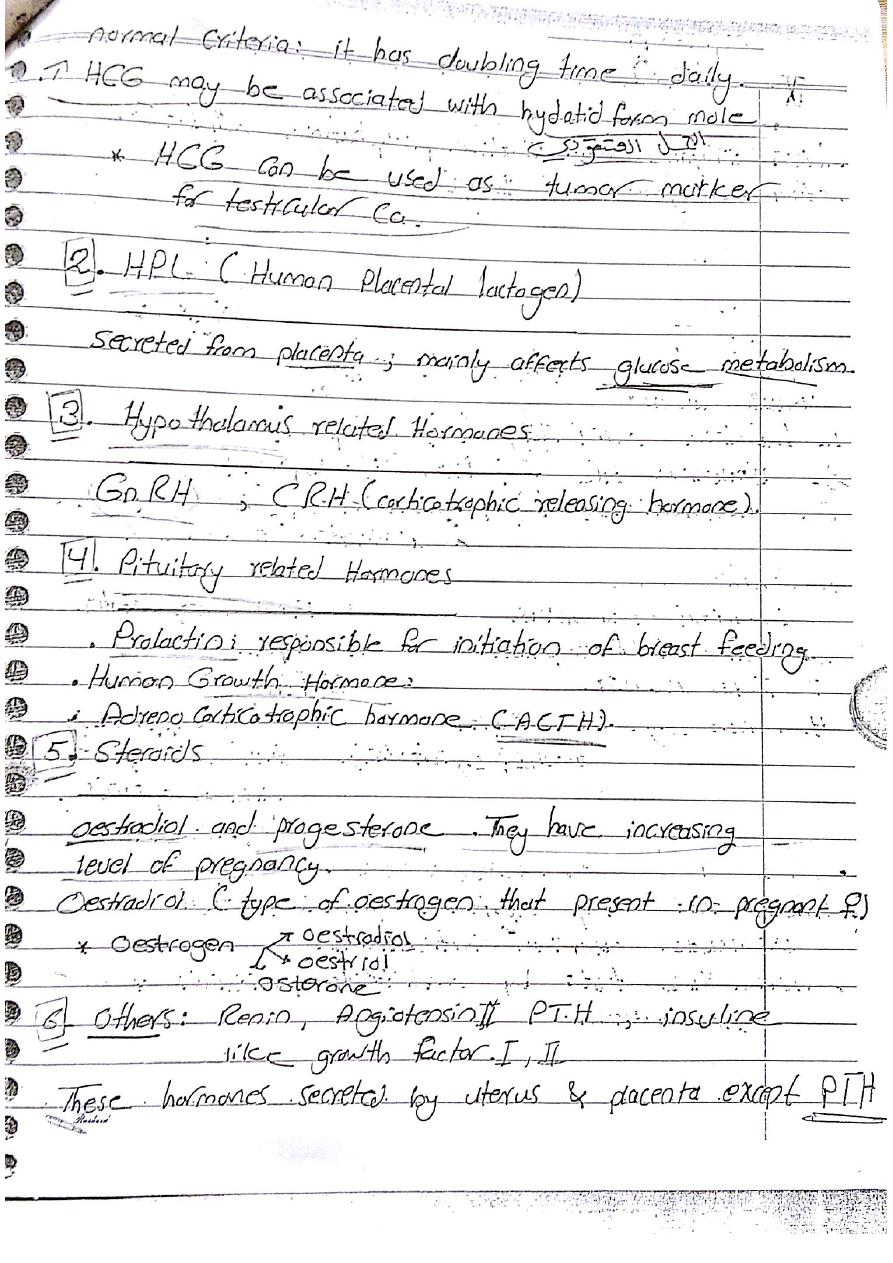 normal Criteria: it has doubling time daily.
↑ HCG may be associated with hydatid form mole
الحمل العنقودي
* HCG can be used as tumor marker
for testicular Ca.
2. HPL (Human Placental lactogen)
secreted from placenta; mainly affects glucose metabolism.
3. Hypothalamus related Hormones
GnRH, CRH (corticotrophic releasing hormone).
4. Pituitary related Hormones
. Prolactin: responsible for initiation of breast feeding.
. Human Growth Hormone:
. Adreno corticotrophic hormone (ACTH).
5. Steroids
oestradiol and progesterone. They have increasing
level of pregnancy.
Oestradiol (type of oestrogen that present in pregnant ♀)
* Oestrogen → oestradiol
→ oestriol
osterone
6. Others: Renin, Angiotensin II PTH, insuline
like growth factor I, II
These hormones secreted by uterus & placenta except PTH